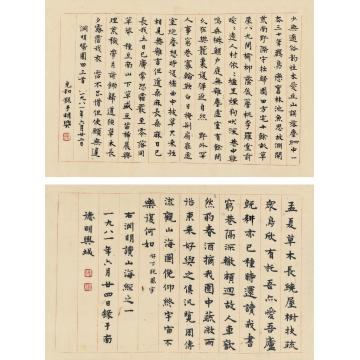 少無適俗韵性本愛丘山誤落塵網中一
去三十年羈鳥戀舊林池魚思故淵開
荒南野際守拙歸園田方宅十餘畝草
屋八九間榆柳蔭後簷桃李羅堂前
曖々遠人村依々墟里煙狗吠深巷中雞
鳴桑樹顛户庭無塵雜虛室有餘閒
久在樊籠裏復得返自然 野外罕
人事窮巷寡輪鞅白日掩荊扉虛
室絕塵想時復墟曲中披草共來往
相見無雜言但道桑麻長桑麻日已
長我土日已廣常恐霜霰至零落同
草莽 種豆南山下草盛豆苗稀晨興
理荒穢帶月荷鋤歸道狹草木長
夕露霑我衣 衣霑不足惜但使願無違
淵明歸園田三首 一九八一年六月廿二日
充和
孟夏草木長繞屋樹扶疏
衆鳥欣有托吾亦愛吾廬
既耕亦已種時還讀我書
窮巷隔深轍頗迴故人車歡
然酌春酒摘我園中蔬微雨
從東來好與之俱汎覽周王傳
流觀山海圖俛仰終宇宙不
樂復何如 好下脱風字
右淵明讀山海經之一
一九八一年六月廿四日錄于南
德明興城